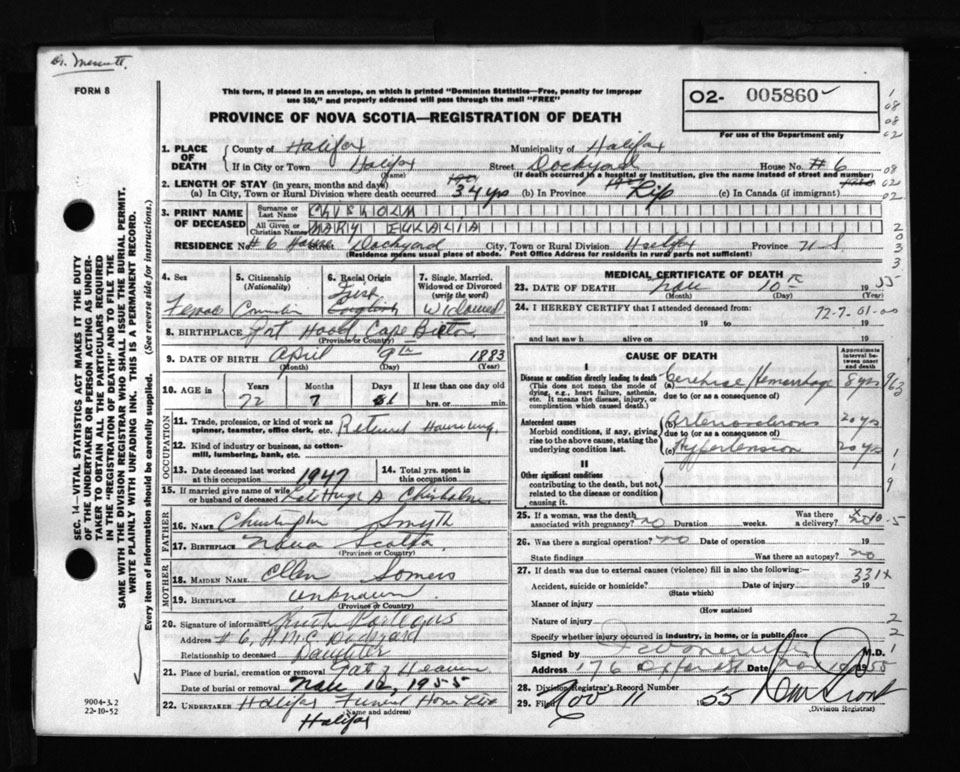 Dr. Merritt.
FORM 8
This form, if placed in an envelope, on which is printed "Dominion Statistics—Free, penalty for improper
use $50," and properly addressed will pass through the mail "FREE"
PROVINCE OF NOVA SCOTIA—REGISTRATION OF DEATH
O2- 005860
For use of the Department only
1. PLACE OF DEATH
County of Halifax Municipality of Halifax
If in City or Town Halifax Street Dockyard House No. #6
(Name) (If death occurred in a hospital or institution, give the name instead of street and number)
2. LENGTH OF STAY (in years, months and days)
(a) In City, Town or Rural Division where death occurred 34 yrs (b) In Province Life (c) In Canada (if immigrant)
3. PRINT NAME OF DECEASED
Surname or Last Name CHISHOLM
All Given or Christian Names MARY EUKALIA
RESIDENCE No. #6 Dockyard City, Town or Rural Division Halifax Province N.S.
(Residence means usual place of abode. Post Office Address for residents in rural parts not sufficient)
4. Sex Female
5. Citizenship (Nationality) Canadian
6. Racial Origin Irish English
7. Single, Married, Widowed or Divorced (write the word) Widowed
8. BIRTHPLACE Port Hood Cape Breton
(Province or Country)
9. DATE OF BIRTH April 9th 1883
(Month) (Day) (Year)
10. AGE in Years Months Days If less than one day old
72 7 1 hrs. or min.
OCCUPATION
11. Trade, profession, or kind of work as spinner, teamster, office clerk, etc. Retired
12. Kind of industry or business, as cotton-mill, lumbering, bank, etc.
13. Date deceased last worked at this occupation 1947
14. Total yrs. spent in this occupation
15. If married give name of wife or husband of deceased Late Hugh A Chisholm
FATHER
16. NAME Christopher Smyth
17. BIRTHPLACE Nova Scotia
(Province or Country)
MOTHER
18. MAIDEN NAME Ellen Somers
19. BIRTHPLACE unknown
(Province or Country)
20. Signature of informant Ruth
Address #6, H.M.C. Dockyard
Relationship to deceased Daughter
21. Place of burial, cremation or removal Gate of Heaven
Date of burial or removal Nov 12, 1955
22. UNDERTAKER Halifax Funeral Home Ltd
(Name and address)
Halifax
MEDICAL CERTIFICATE OF DEATH
23. DATE OF DEATH Nov 10th 1955
(Month) (Day) (Year)
24. I HEREBY CERTIFY that I attended deceased from:
72-7-01-00
19 to 19
and last saw h alive on 19
CAUSE OF DEATH
Approximate interval between onset and death
I
Disease or condition directly leading to death (a) Cerebral Hemorrhage 8 yrs 963
(This does not mean the mode of dying, e.g., heart failure, asthenia, etc. It means the disease, injury, or complication which caused death.)
due to (or as a consequence of)
Antecedent causes (b) Arteriosclerosis 20 yrs
Morbid conditions, if any, giving rise to the above cause, stating the underlying condition last.
due to (or as a consequence of)
(c) Hypertension 20 yrs
II
Other significant conditions
contributing to the death, but not related to the disease or condition causing it.
25. If a woman, was the death associated with pregnancy? no Duration weeks. Was there a delivery?
26. Was there a surgical operation? no Date of operation 19
State findings Was there an autopsy? no
27. If death was due to external causes (violence) fill in also the following:—
331x
Accident, suicide or homicide? Date of injury 19
(State which)
Manner of injury
(How sustained
Nature of injury
Specify whether injury occurred in industry, in home, or in public place
Signed by M.D.
Address 176 Oxford St. Date Nov 10 1955
28. Division Registrar's Record Number
29. Filed Nov 11 1955
(Division Registrar)
SEC. 14—VITAL STATISTICS ACT MAKES IT THE DUTY
OF THE UNDERTAKER OR PERSON ACTING AS UNDER-
TAKER TO OBTAIN ALL THE PARTICULARS REQUIRED
IN THE "REGISTRATION OF DEATH" AND TO FILE THE
SAME WITH THE DIVISION REGISTRAR WHO SHALL ISSUE THE BURIAL PERMIT.
WRITE PLAINLY WITH UNFADING INK. THIS IS A PERMANENT RECORD.
Every item of information should be carefully supplied. (See reverse side for instructions.)
9004-3.2
22-10-52